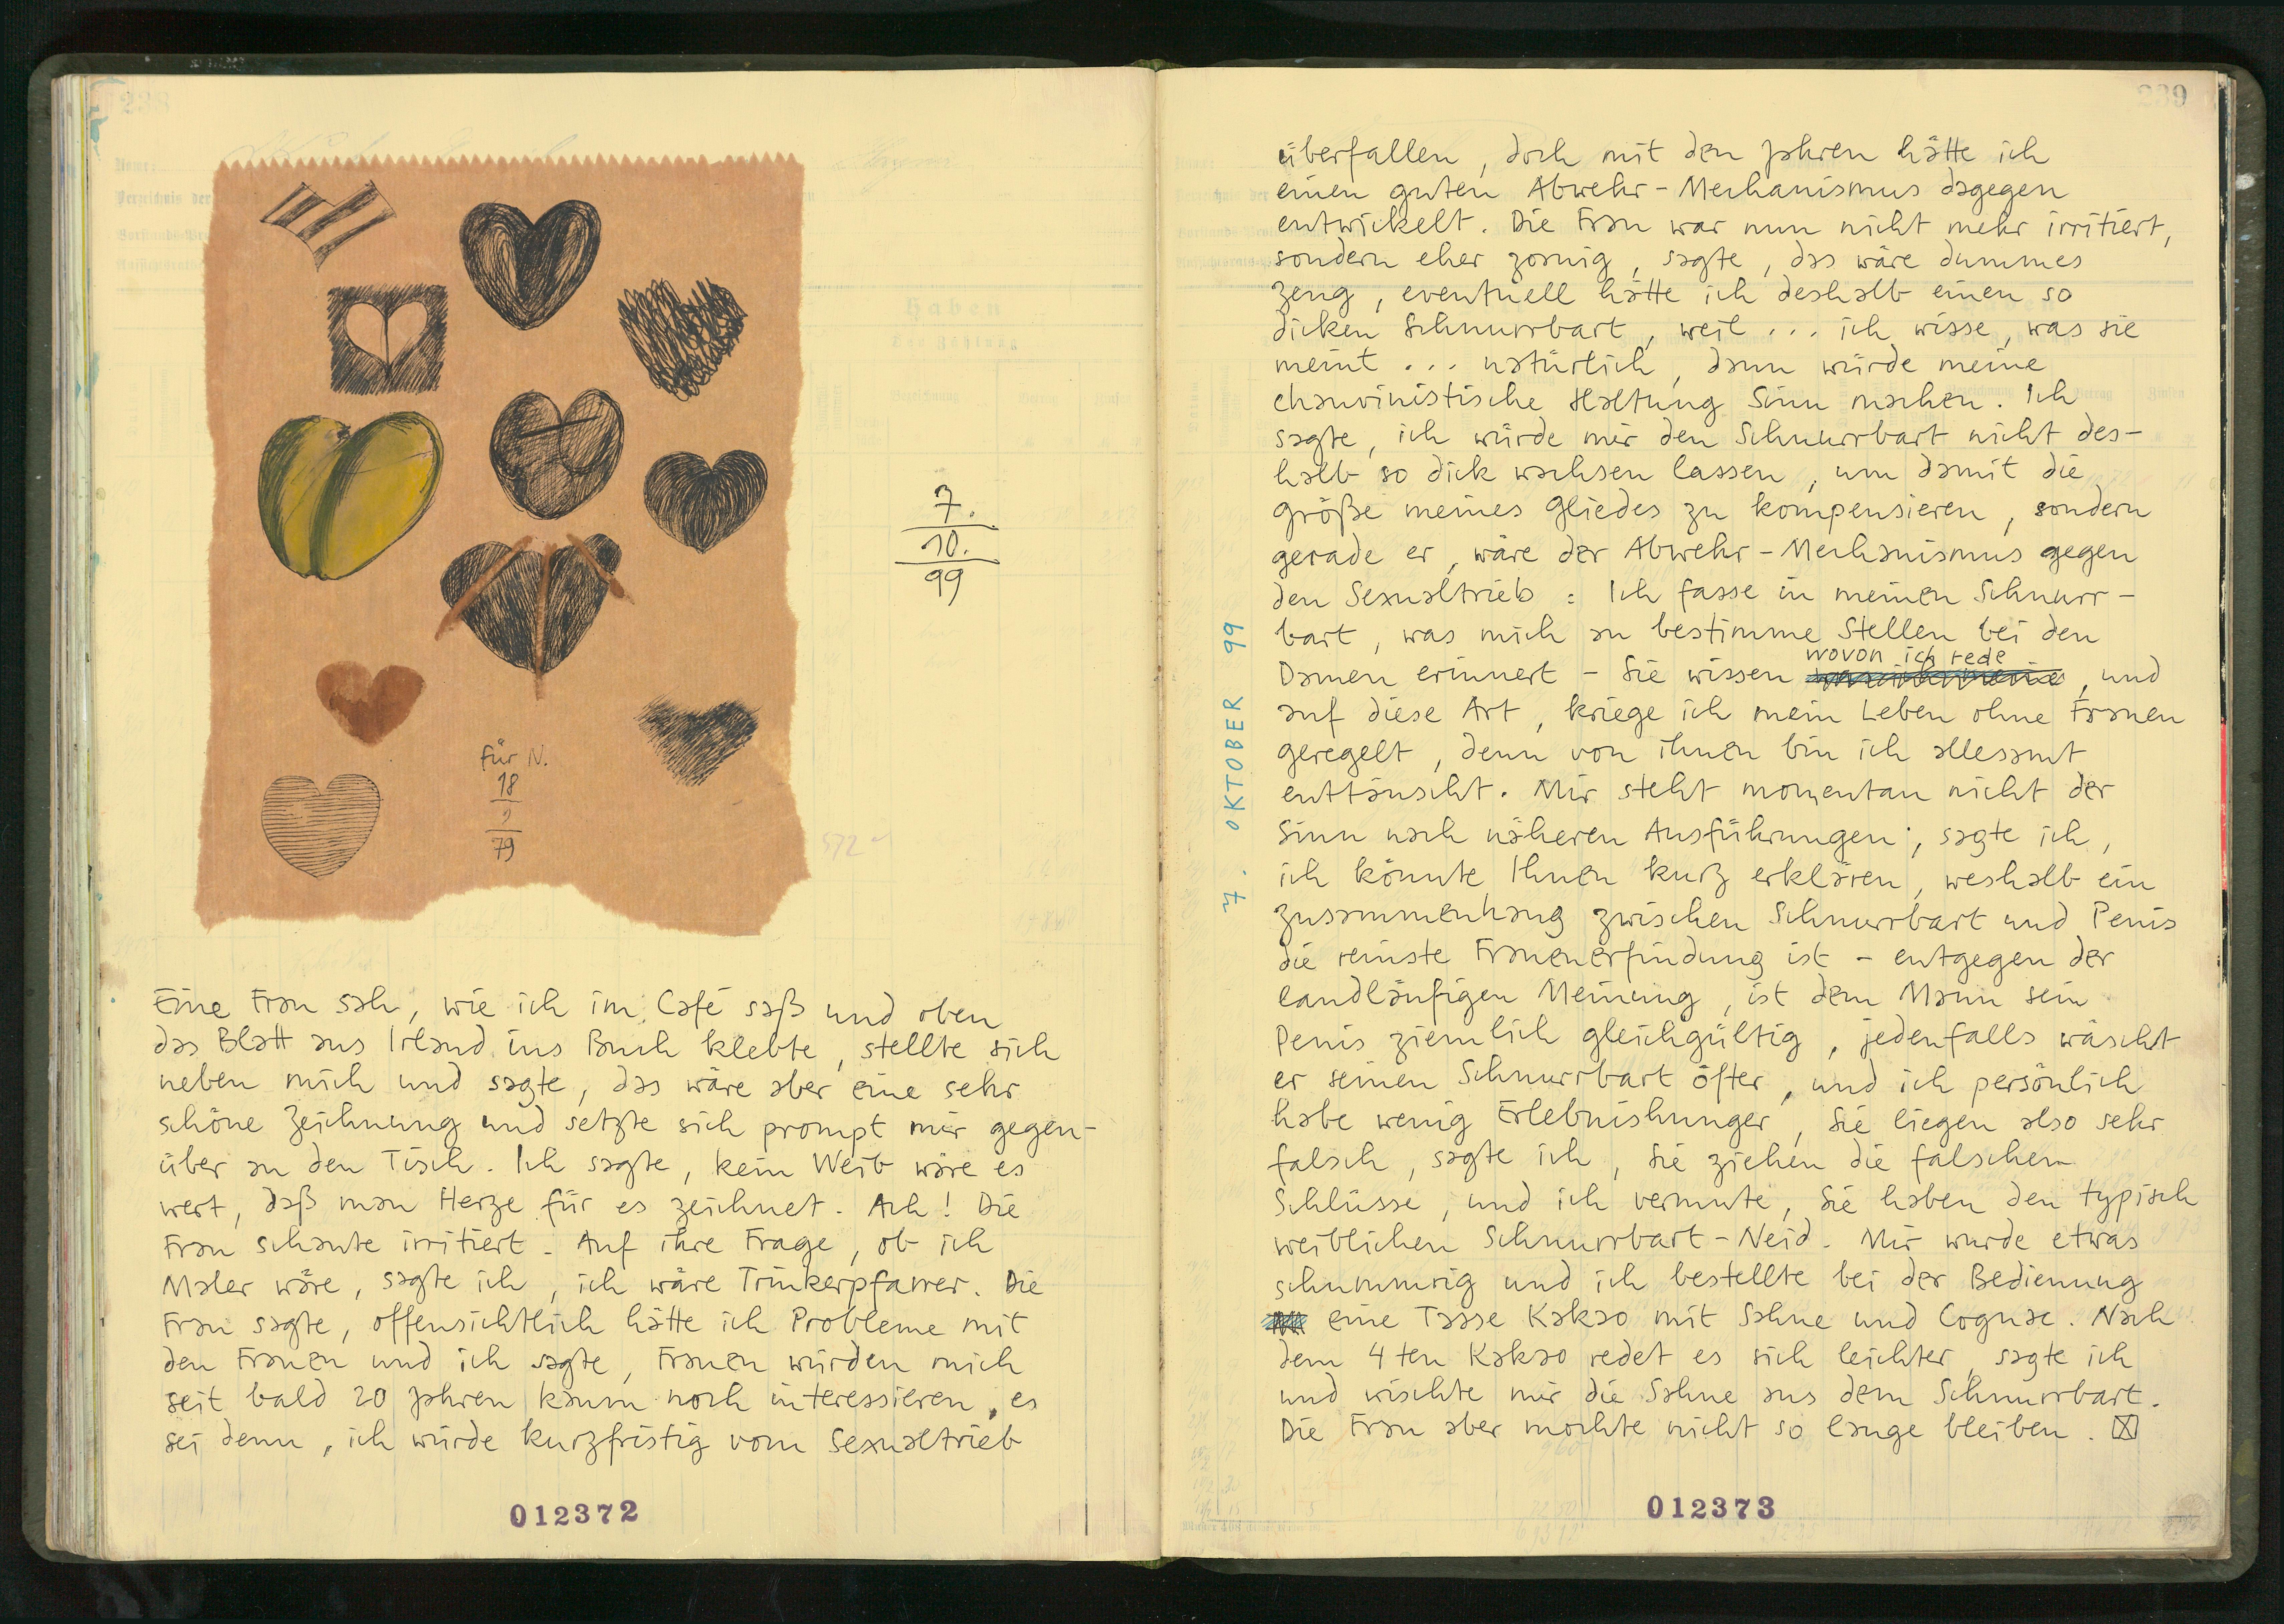 238
für N.
18
9
79
7.
10.
99
Haben
Eine Frau sah, wie ich im Café saß und oben
das Blatt aus Irland ins Buch klebte, stellte sich
neben mich und sagte, das wäre aber eine sehr
schöne Zeichnung und setzte sich prompt mir gegen-
über an den Tisch. Ich sagte, kein Weib wäre es
wert, daß man Herze für es zeichnet. Ach! Die
Frau schaute irritiert. Auf ihre Frage, ob ich
Maler wäre, sagte ich, ich wäre Trinkerpfarrer. Die
Frau sagte, offensichtlich hätte ich Probleme mit
den Frauen und ich sagte, Frauen würden mich
seit bald 20 Jahren kaum noch interessieren, es
sei denn, ich würde kurzfristig vom Sexualtrieb
012372
239
7. OKTOBER 99
überfallen, doch mit den Jahren hätte ich
einen guten Abwehr-Mechanismus dagegen
entwickelt. Die Frau war nun nicht mehr irritiert,
sondern eher zornig, sagte, das wäre dummes
Zeug, eventuell hätte ich deshalb einen so
dicken Schnurrbart, weil ... ich wisse, was sie
meint ... natürlich, dann würde meine
chauvinistische Haltung Sinn machen. Ich
sagte, ich würde mir den Schnurrbart nicht des-
halb so dick wachsen lassen, um damit die
Größe meines Gliedes zu kompensieren, sondern
gerade er, wäre der Abwehr-Mechanismus gegen
den Sexualtrieb: Ich fasse in meinen Schnurr-
bart, was mich an bestimme Stellen bei den
Damen erinnert - Sie wissen wovon ich rede, und
auf diese Art, kriege ich mein Leben ohne Frauen
geregelt, denn von ihnen bin ich allesamt
enttäuscht. Mir steht momentan nicht der
Sinn nach näheren Ausführungen, sagte ich,
ich könnte Ihnen kurz erklären, weshalb ein
Zusammenhang zwischen Schnurrbart und Penis
die reinste Frauenerfindung ist - entgegen der
landläufigen Meinung, ist dem Mann sein
Penis ziemlich gleichgültig, jedenfalls wäscht
er seinen Schnurrbart öfter, und ich persönlich
habe wenig Erlebnishunger, Sie liegen also sehr
falsch, sagte ich, Sie ziehen die falschen
Schlüsse, und ich vermute, Sie haben den typisch
weiblichen Schnurrbart-Neid. Mir wurde etwas
schummrig und ich bestellte bei der Bedienung
eine Tasse Kakao mit Sahne und Cognac. Nach
dem 4ten Kakao redet es sich leichter, sagte ich
und wischte mir die Sahne aus dem Schnurrbart.
Die Frau aber mochte nicht so lange bleiben.
012373